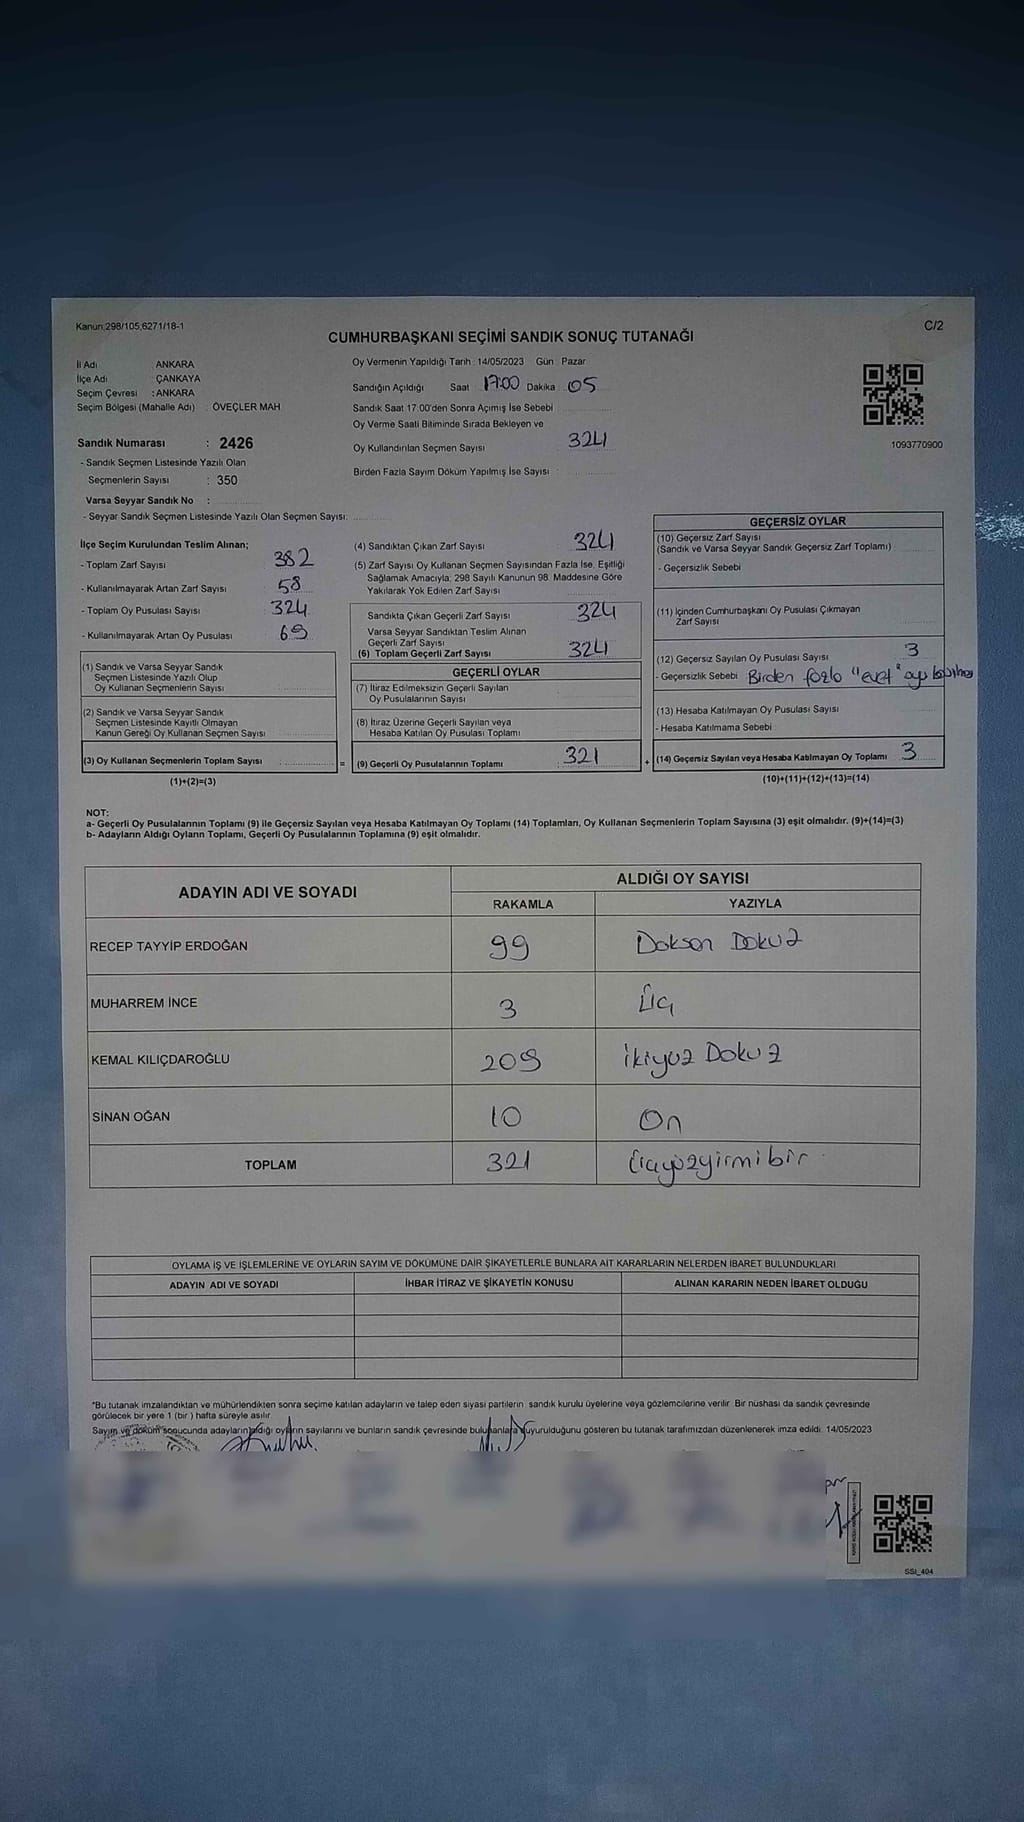 Kanun:298/105;6271/18-1
C/2
CUMHURBAŞKANI SEÇİMİ SANDIK SONUÇ TUTANAĞI
İl Adı ANKARA
İlçe Adı ÇANKAYA
Seçim Çevresi : ANKARA
Seçim Bölgesi (Mahalle Adı) : ÖVEÇLER MAH
Sandık Numarası : 2426
- Sandık Seçmen Listesinde Yazılı Olan
Seçmenlerin Sayısı : 350
Varsa Seyyar Sandık No :
- Seyyar Sandık Seçmen Listesinde Yazılı Olan Seçmen Sayısı:
Oy Vermenin Yapıldığı Tarih : 14/05/2023 Gün : Pazar
Sandığın Açıldığı Saat 17:00 Dakika : 05
Sandık Saat 17:00'den Sonra Açımış İse Sebebi
Oy Verme Saati Bitiminde Sırada Bekleyen ve
Oy Kullandırılan Seçmen Sayısı 324
Birden Fazla Sayım Döküm Yapılmış İse Sayısı :
1093770900
İlçe Seçim Kurulundan Teslim Alınan;
- Toplam Zarf Sayısı 382
- Kullanılmayarak Artan Zarf Sayısı 58
- Toplam Oy Pusulası Sayısı 324
- Kullanılmayarak Artan Oy Pusulası 69
(1) Sandık ve Varsa Seyyar Sandık
Seçmen Listesinde Yazılı Olup
Oy Kullanan Seçmenlerin Sayısı
(2) Sandık ve Varsa Seyyar Sandık
Seçmen Listesinde Kayıtlı Olmayan
Kanun Gereği Oy Kullanan Seçmen Sayısı
(3) Oy Kullanan Seçmenlerin Toplam Sayısı :
(1)+(2)=(3)
(4) Sandıktan Çıkan Zarf Sayısı 324
(5) Zarf Sayısı Oy Kullanan Seçmen Sayısından Fazla İse, Eşitliği
Sağlamak Amacıyla; 298 Sayılı Kanunun 98. Maddesine Göre
Yakılarak Yok Edilen Zarf Sayısı
Sandıkta Çıkan Geçerli Zarf Sayısı 324
Varsa Seyyar Sandıktan Teslim Alınan
Geçerli Zarf Sayısı
(6) Toplam Geçerli Zarf Sayısı 324
GEÇERLİ OYLAR
(7) İtiraz Edilmeksizin Geçerli Sayılan
Oy Pusulalarının Sayısı
(8) İtiraz Üzerine Geçerli Sayılan veya
Hesaba Katılan Oy Pusulası Toplamı
= (9) Geçerli Oy Pusulalarının Toplamı 321
GEÇERSİZ OYLAR
(10) Geçersiz Zarf Sayısı
(Sandık ve Varsa Seyyar Sandık Geçersiz Zarf Toplamı)
- Geçersizlik Sebebi
(11) İçinden Cumhurbaşkanı Oy Pusulası Çıkmayan
Zarf Sayısı
(12) Geçersiz Sayılan Oy Pusulası Sayısı 3
- Geçersizlik Sebebi Birden fazla "evet"
(13) Hesaba Katılmayan Oy Pusulası Sayısı
- Hesaba Katılmama Sebebi
+ (14) Geçersiz Sayılan veya Hesaba Katılmayan Oy Toplamı 3
(10)+(11)+(12)+(13)=(14)
NOT:
a- Geçerli Oy Pusulalarının Toplamı (9) ile Geçersiz Sayılan veya Hesaba Katılmayan Oy Toplamı (14) Toplamları, Oy Kullanan Seçmenlerin Toplam Sayısına (3) eşit olmalıdır. (9)+(14)=(3)
b- Adayların Aldığı Oyların Toplamı, Geçerli Oy Pusulalarının Toplamına (9) eşit olmalıdır.
ADAYIN ADI VE SOYADI
ALDIĞI OY SAYISI
RAKAMLA YAZIYLA
RECEP TAYYİP ERDOĞAN 99 Doksan Dokuz
MUHARREM İNCE 3 Üç
KEMAL KILIÇDAROĞLU 209 ikiyüz Dokuz
SİNAN OĞAN 10 On
TOPLAM 321 Üçyüzyirmibir
OYLAMA İŞ VE İŞLEMLERİNE VE OYLARIN SAYIM VE DÖKÜMÜNE DAİR ŞİKAYETLERLE BUNLARA AİT KARARLARIN NELERDEN İBARET BULUNDUKLARI
ADAYIN ADI VE SOYADI İHBAR İTİRAZ VE ŞİKAYETİN KONUSU ALINAN KARARIN NEDEN İBARET OLDUĞU
*Bu tutanak imzalandıktan ve mühürlendikten sonra seçime katılan adayların ve talep eden siyasi partilerin sandık kurulu üyelerine veya gözlemcilerine verilir. Bir nüshası da sandık çevresinde
görülecek bir yere 1 (bir ) hafta süreyle asılır.
Sayım ve döküm sonucunda adayların aldığı oyların sayılarını ve bunların sandık çevresinde bulunanlara duyurulduğunu gösteren bu tutanak tarafımızdan düzenlenerek imza edildi. 14/05/2023
SSI_404